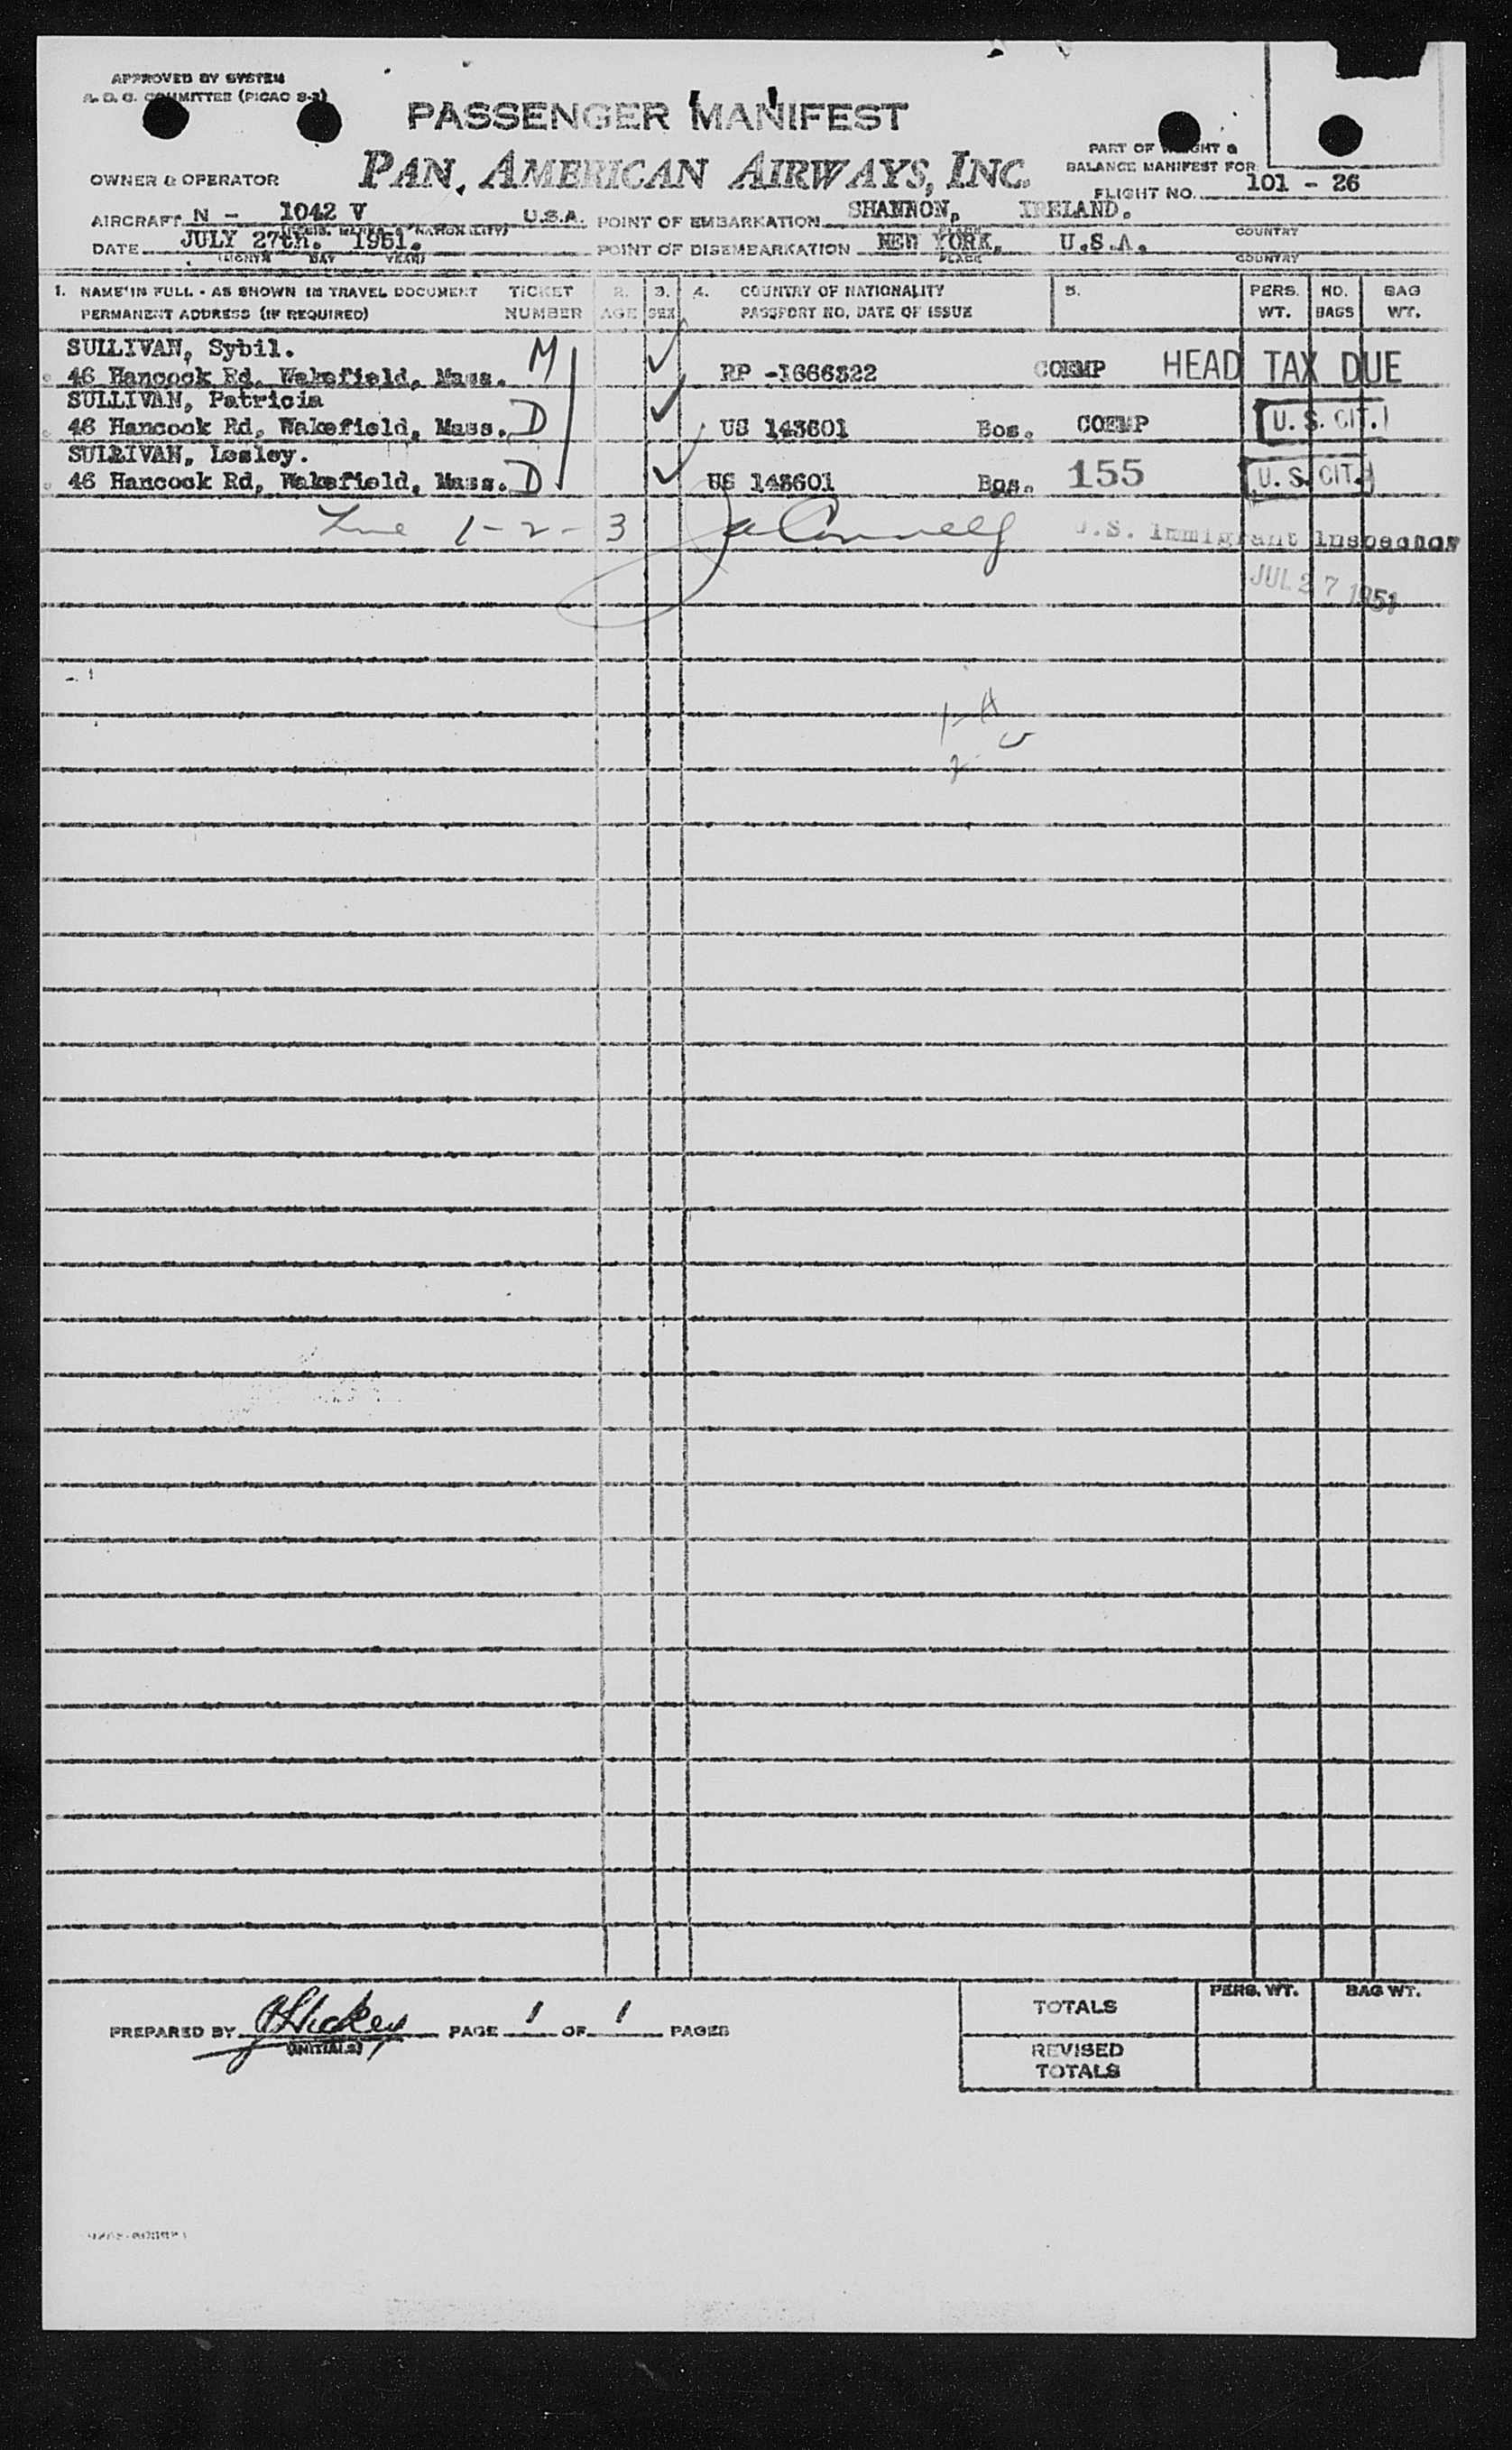 APPROVED BY SYSTEM
A. O. C. COMMITTEE (PICAO S-2)
PASSENGER MANIFEST
PAN AMERICAN AIRWAYS, INC.
PART OF WEIGHT &
BALANCE MANIFEST FOR
OWNER & OPERATOR
FLIGHT NO. 101 - 26
AIRCRAFT N - 1042 V U.S.A. POINT OF EMBARKATION SHANNON, IRELAND.
PLACE COUNTRY
DATE JULY 27th. 1951. POINT OF DISEMBARKATION NEW YORK, U.S.A.
(MONTH DAY YEAR) PLACE COUNTRY
1. NAME IN FULL - AS SHOWN IN TRAVEL DOCUMENT TICKET 2. 3. 4. COUNTRY OF NATIONALITY 5. PERS. NO. BAG
PERMANENT ADDRESS (IF REQUIRED) NUMBER AGE SEX PASSPORT NO. DATE OF ISSUE WT. BAGS WT.
SULLIVAN, Sybil. M
46 Hancock Rd, Wakefield, Mass. RP -1666322 COEMP HEAD TAX DUE
SULLIVAN, Patricia
46 Hancock Rd, Wakefield, Mass. D US 143601 Bos. COEMP U. S. CIT.
SULLIVAN, Lesley.
46 Hancock Rd, Wakefield, Mass. D US 143601 Bos. 155 U. S. CIT.
Line 1-2-3 U.S. Immigrant Inspector
JUL 27 1951
PREPARED BY PAGE 1 OF 1 PAGES
(INITIALS)
PERS. WT. BAG WT.
TOTALS
REVISED
TOTALS